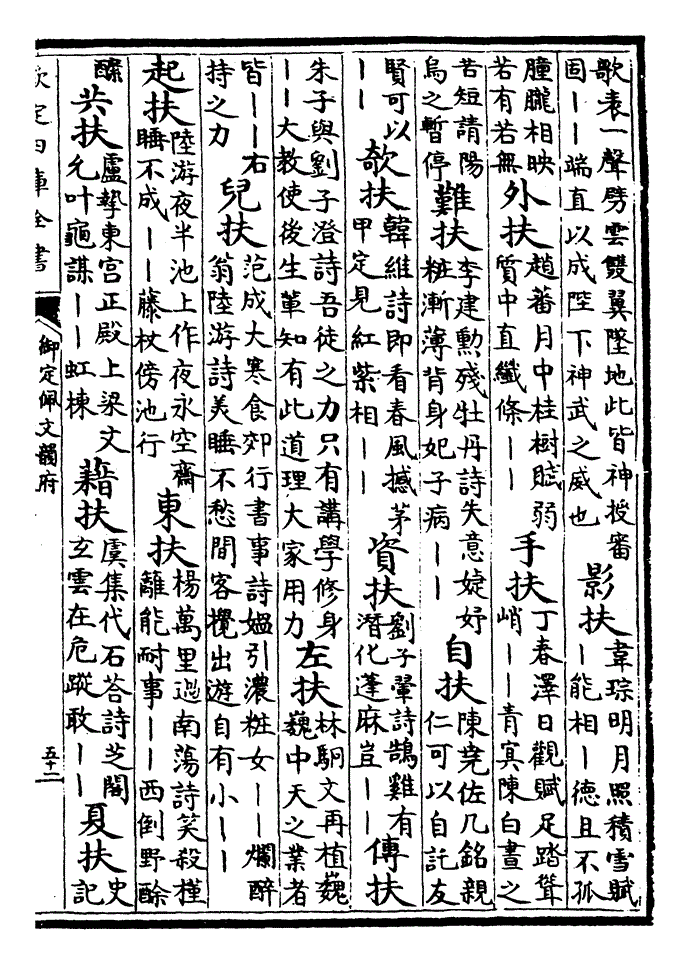 歌表一聲劈雲雙翼墜地此皆神授審固——端直以成陛下神武之威也 影扶 韋琮明月照積雪賦—能相—德且不孤
朣朧相映若有若無 外扶 趙蕃月中桂樹賦弱質中直纖條—— 手扶 丁春澤日觀賦足踏聳峭——青冥陳白晝之
苦短請陽烏之暫停 難扶 李建勲殘牡丹詩失意婕妤粧漸薄背身妃子病—— 自扶 陳堯佐几銘親仁可以自託友
賢可以—— 欹扶 韓維詩即看春風撼茅甲定見紅紫相—— 資扶 劉子翬詩鵠雞有潛化蓬麻豈—— 傳扶
朱子與劉子澄詩吾徒之力只有講學修身——大教使後生輩知有此道理大家用力 左扶 林駉文再植巍巍中天之業者
皆——右持之力 兒扶 范成大寒食郊行書事詩媼引濃粧女——爛醉翁陸游詩美睡不愁間客攪出遊自有小——
起扶 陸游夜半池上作夜永空齋睡不成——藤杖傍池行 東扶 楊萬里過南蕩詩笑殺槿籬能耐事——西倒野酴
醾 共扶 盧摯東宫正殿上梁文允叶龜謀——虹棟 藉扶 虞集代石荅詩芝閣玄雲在危蹤敢—— 夏扶 史記
欽定四庫全書 御定佩文韻府 五十二